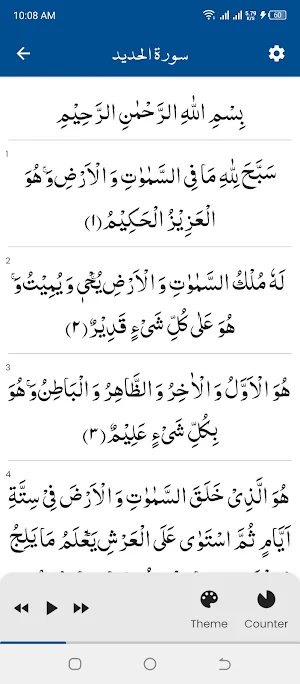 10:08 AM 5.79 K/s 60
سورة الحديد
بِسْمِ اللّٰهِ الرَّحْمٰنِ الرَّحِيْمِ
1
سَبَّحَ لِلّٰهِ مَا فِى السَّمٰوٰتِ وَ الْاَرْضِۚ وَ هُوَ
الْعَزِيْزُ الْحَكِيْمُ (۱)
2
لَهٗ مُلْكُ السَّمٰوٰتِ وَ الْاَرْضِۚ يُحْیٖ وَ يُمِيْتُۚ وَ
هُوَ عَلٰى كُلِّ شَیْءٍ قَدِيْرٌ (۲)
3
هُوَ الْاَوَّلُ وَ الْاٰخِرُ وَ الظَّاهِرُ وَ الْبَاطِنُۚ وَ هُوَ
بِكُلِّ شَیْءٍ عَلِيْمٌ (۳)
4
هُوَ الَّذِيْ خَلَقَ السَّمٰوٰتِ وَ الْاَرْضَ فِيْ سِتَّةِ
اَيَّامٍ ثُمَّ اسْتَوٰى عَلَى الْعَرْشِؕ يَعْلَمُ مَا يَلِجُ
Theme Counter